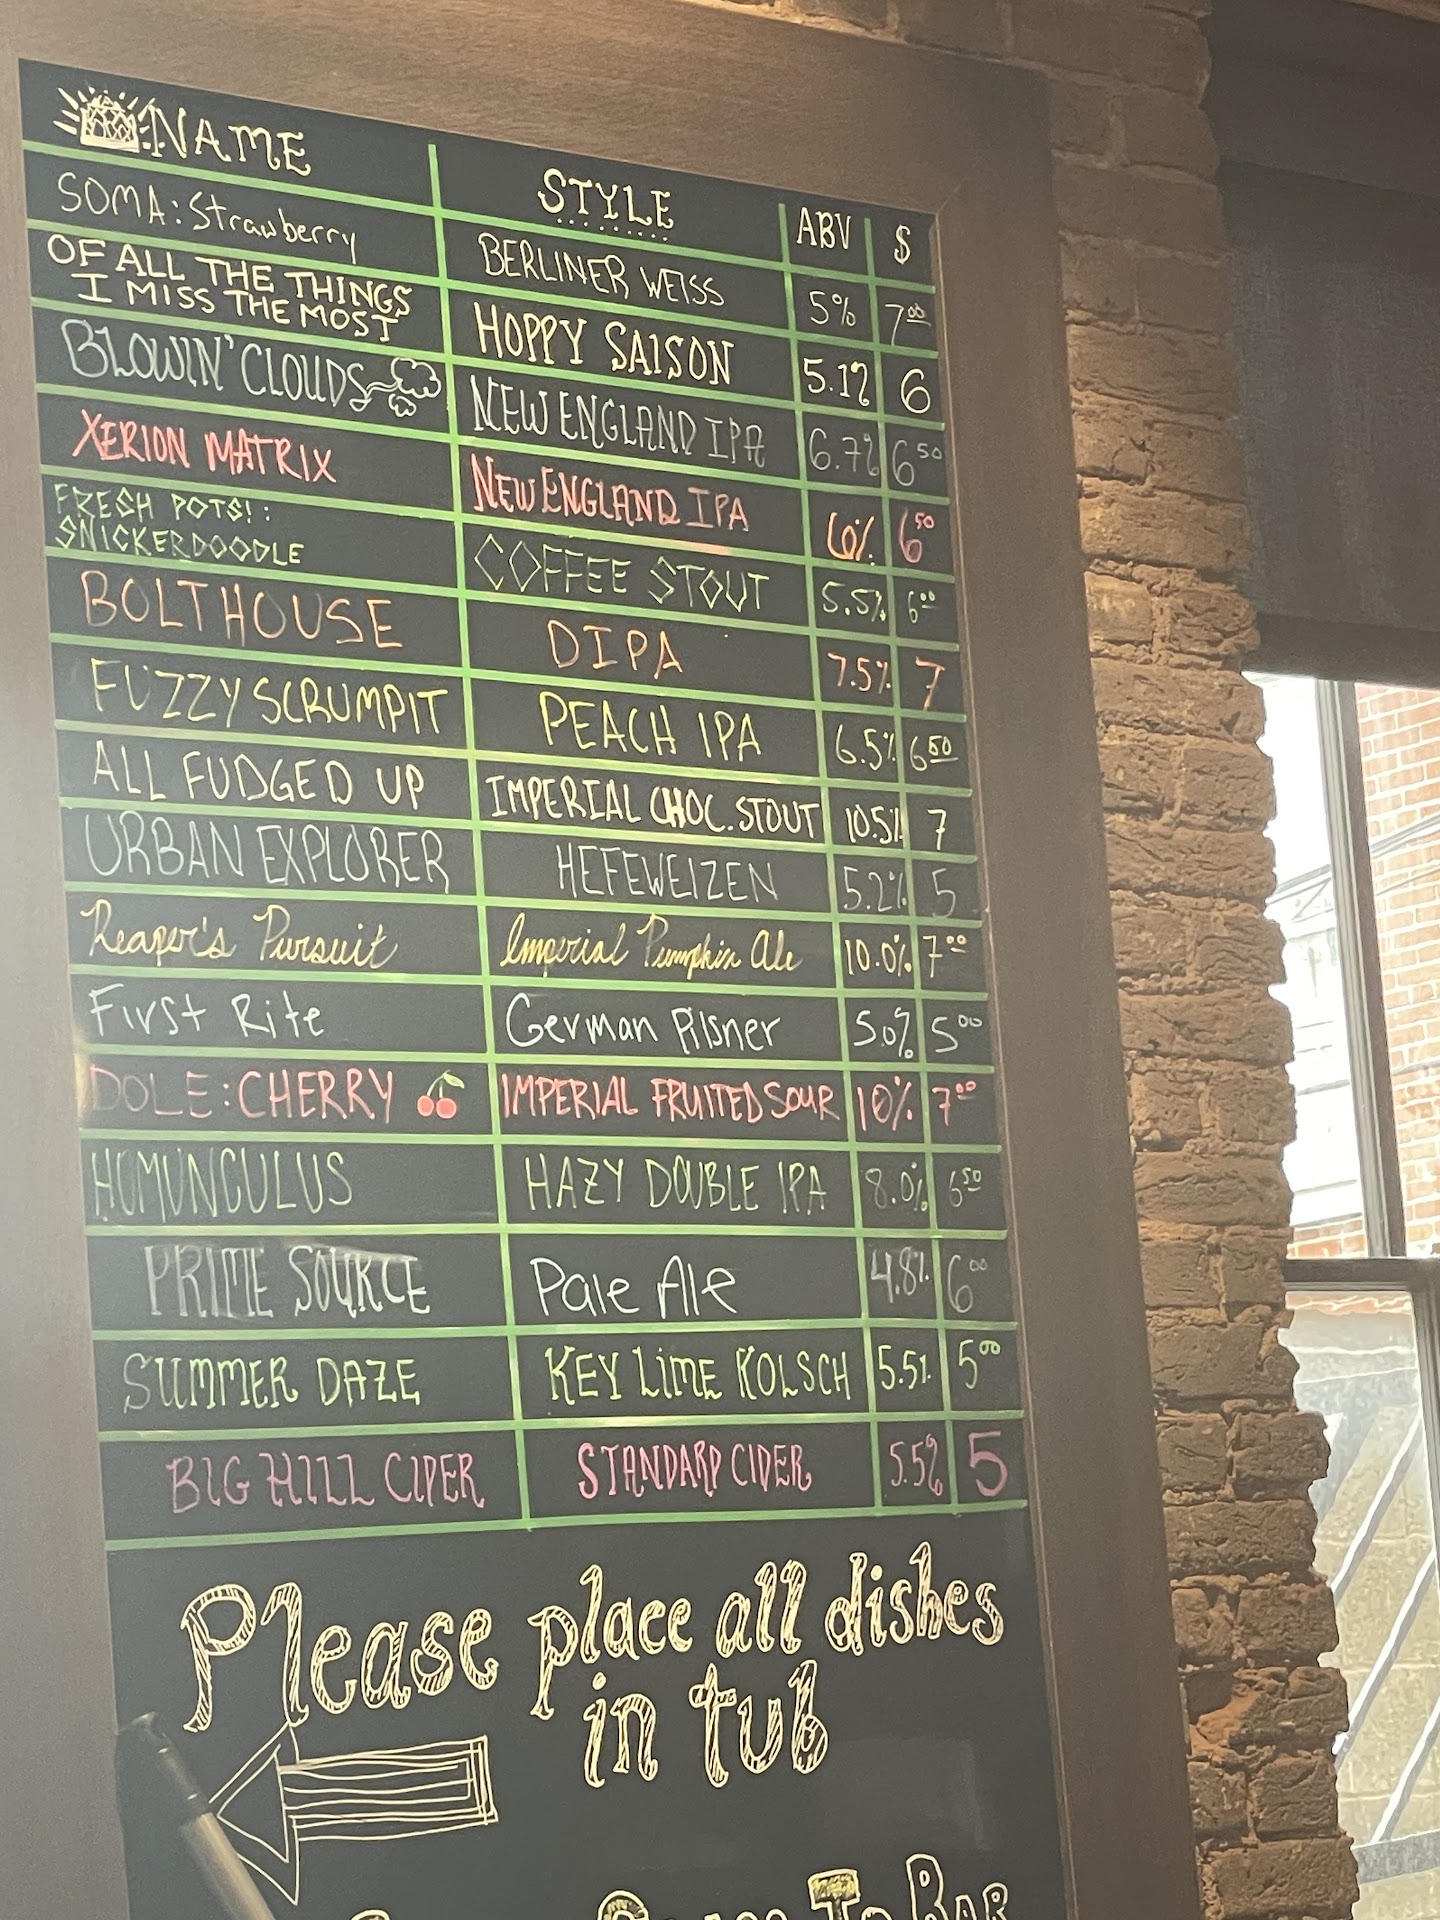 NAME STYLE ABV $
SOMA: Strawberry BERLINER WEISS 5% 7.00
OF ALL THE THINGS
I MISS THE MOST HOPPY SAISON 5.1% 6
BLOWIN' CLOUDS NEW ENGLAND IPA 6.7% 6.50
XERION MATRIX NEW ENGLAND IPA 6% 6.50
FRESH POTS!:
SNICKERDOODLE COFFEE STOUT 5.5% 6.00
BOLTHOUSE DIPA 7.5% 7
FUZZY SCRUMPIT PEACH IPA 6.5% 6.50
ALL FUDGED UP IMPERIAL CHOC. STOUT 10.5% 7
URBAN EXPLORER HEFEWEIZEN 5.2% 5
Reaper's Pursuit Imperial Pumpkin Ale 10.0% 7.00
First Rite German Pilsner 5.0% 5.00
DOLE: CHERRY IMPERIAL FRUITED SOUR 10% 7.00
HOMUNCULUS HAZY DOUBLE IPA 8.0% 6.50
PRIME SOURCE Pale Ale 4.8% 6.00
SUMMER DAZE KEY LIME KOLSCH 5.5% 5.00
BIG HILL CIDER STANDARD CIDER 5.5% 5
Please place all dishes
in tub
To BAR